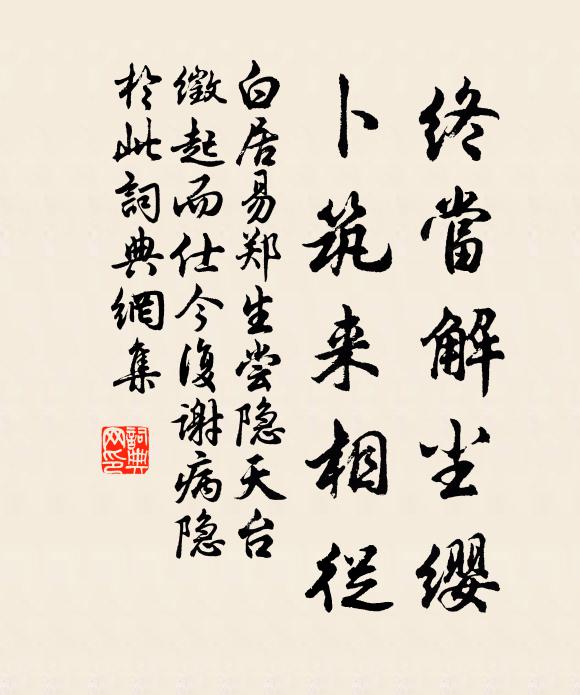 終當解尘缨
卜筑来相從
白居易郑生尝隐天台
徵起而仕今復谢病隐
於此詞典網集
詞典
网印